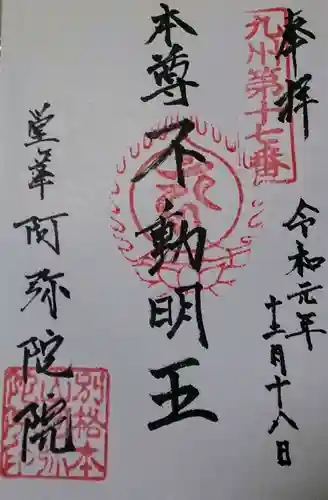 奉拝
九州第十七番
令和元年
十二月十八日
本尊 不動明王
堂峯 阿弥陀院
別格本